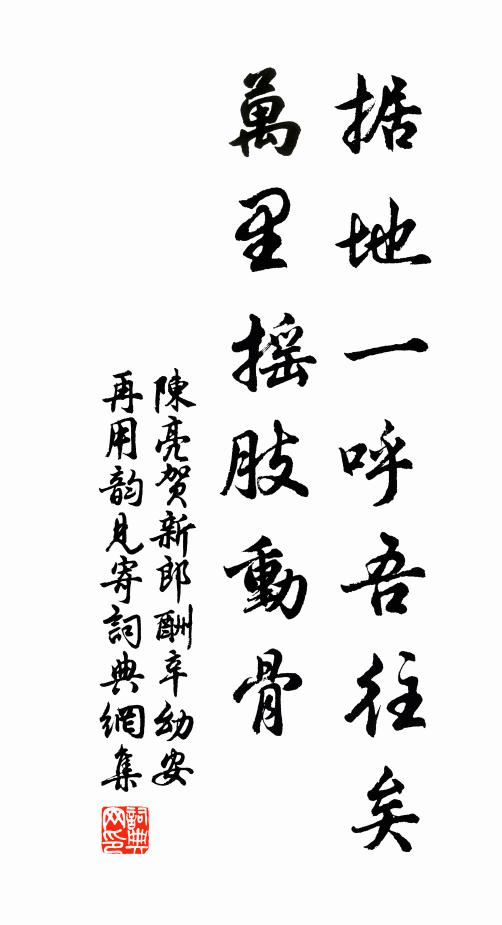 据地一呼吾往矣
萬里摇肢動骨
陳亮贺新郎酬辛幼安
再用韵見寄詞典網集
詞典
网印